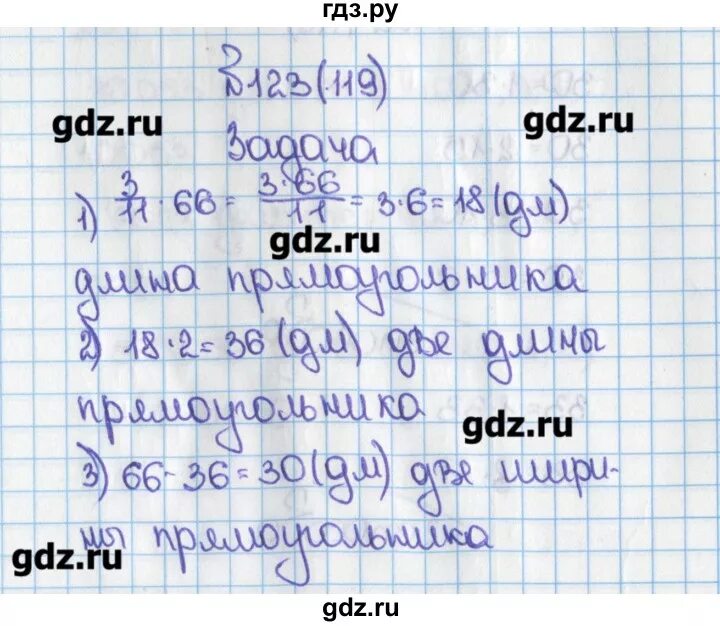 гдз.ру
№123(119)
gdz.ru
gdz.ru
Задача
1) 3/11 · 66 = 3·66/11 = 3·6=18(дм)
gdz.ru
длина прямоугольника
2) 18·2=36(дм) две длины
прямоугольника
gdz.ru
3) 66-36=30(дм) две шири-
ны прямоугольника
gdz.ru
gdz.ru